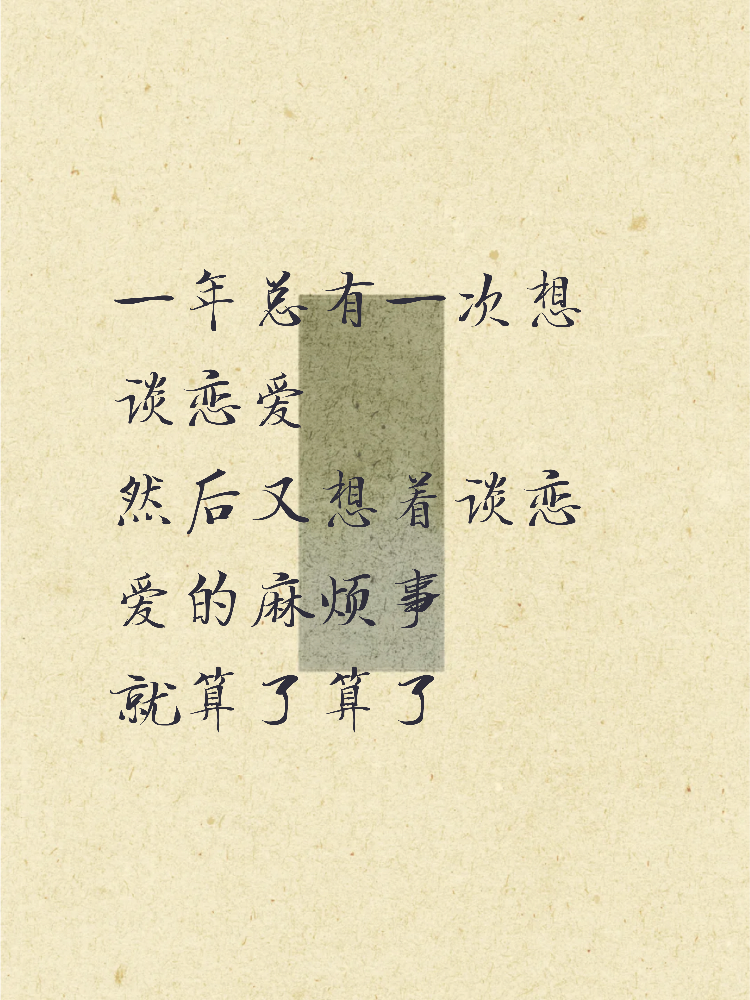 一年总有一次想
谈恋爱
然后又想着谈恋
爱的麻烦事
就算了算了